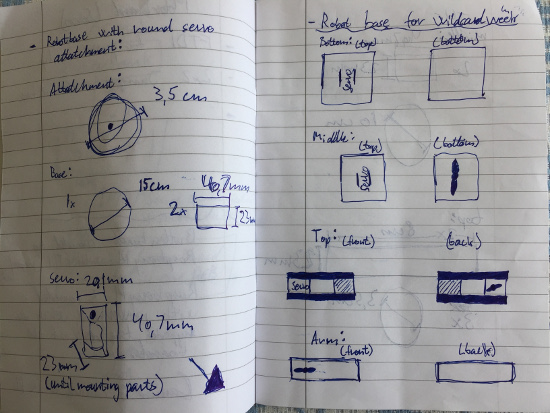 - Robotbase with round servo
attatchment:
Attatchment:
3,5 cm
Base:
1x
15cm
2x
40,7mm
23mm
servo: 20,1mm
40,7mm
23mm
(until mounting parts)
- Robot base for wildcardweek
Bottom: (top)
(bottom)
servo
Middle:
(top)
(bottom)
servo
Top: (front)
(back)
servo
Arm:
(front)
(back)